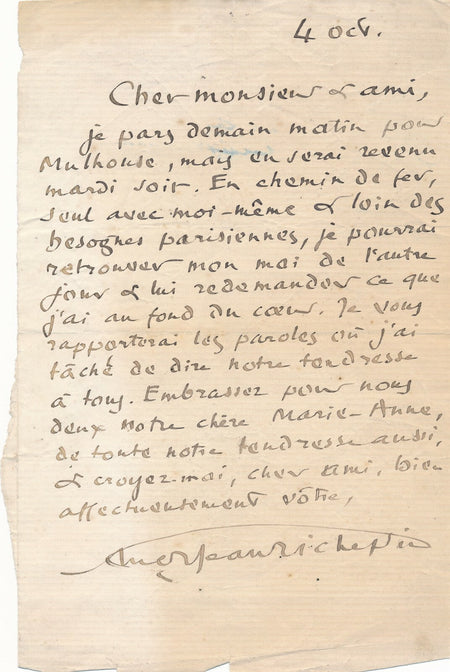 4 oct.
Cher monsieur & ami,
je pars demain matin pour
Mulhouse, mais en serai revenu
mardi soir. En chemin de fer,
seul avec moi-même & loin des
besognes parisiennes, je pourrai
retrouver mon moi de l'autre
jour & lui redemander ce que
j'ai au fond du cœur. Je vous
rapporterai les paroles où j'ai
tâché de dire notre tendresse
à tous. Embrassez pour nous
deux notre chère Marie-Anne,
de toute notre tendresse aussi,
& croyez-moi, cher ami, bien
affectueusement vôtre,
Jean Richepin